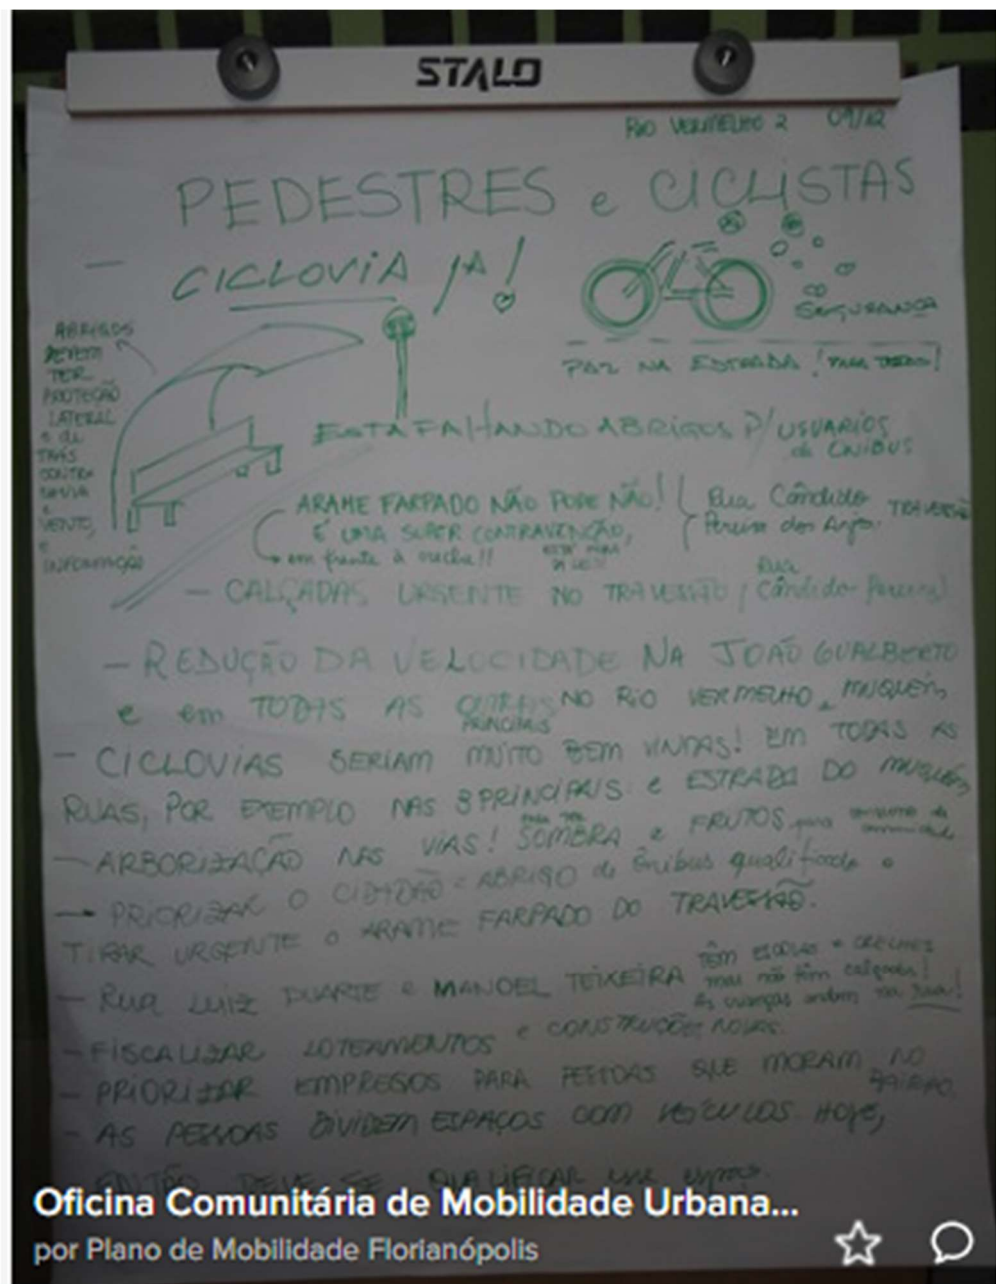 STALO
RIO VERMELHO 2 09/12
PEDESTRES e CICLISTAS
— CICLOVIA JÁ!
SEGURANÇA
PAZ NA ESTRADA! PARA TODOS!
ABRIGOS
DEVEM
TER
PROTEÇÃO
LATERAL
e de
TRÁS
CONTRA
CHUVA
e
VENTO,
e
INFORMAÇÃO
ESTÁ FALTANDO ABRIGOS P/ USUARIOS
de ÔNIBUS
ARAME FARPADO NÃO PODE NÃO!
É UMA SUPER CONTRAVENÇÃO,
em frente à creche!!
Rua Cândido
Pereira dos Anjos.
TRAVESSÃO
— CALÇADAS URGENTE NO TRAVESSÃO / Rua
Cândido Pereira)
— REDUÇÃO DA VELOCIDADE NA JOÃO GUALBERTO
e em TODAS AS OUTRAS NO RIO VERMELHO e MUQUÉM,
PRINCIPAIS
— CICLOVIAS SERIAM MUITO BEM VINDAS! EM TODAS AS
RUAS, POR EXEMPLO NAS 8 PRINCIPAIS e ESTRADA DO MUQUÉM,
— ARBORIZAÇÃO NAS VIAS! PARA TER SOMBRA e FRUTOS para consumo da
comunidade
— PRIORIZAR O CIDADÃO = ABRIGO de ônibus qualificado e
TIRAR URGENTE O ARAME FARPADO DO TRAVESSÃO.
— RUA LUIZ DUARTE e MANOEL TEIXEIRA
têm escolas e CRECHES
mas não têm calçadas!
As crianças andam na rua!
— FISCALIZAR LOTEAMENTOS e CONSTRUÇÕES NOVAS.
— PRIORIZAR EMPREGOS PARA PESSOAS QUE MORAM NO
BAIRRO.
— AS PESSOAS DIVIDEM ESPAÇOS COM VEÍCULOS HOJE,
ENTÃO DEVE SE QUALIFICAR
Oficina Comunitária de Mobilidade Urbana...
por Plano de Mobilidade Florianópolis